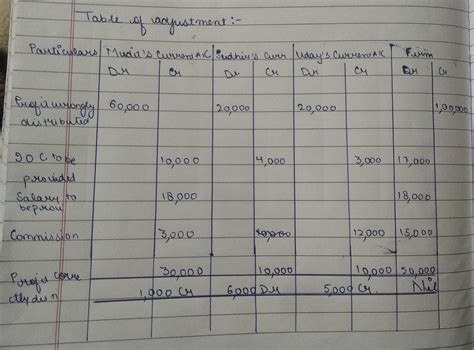 Table of adjustment:-
Particulars Mudit's Current A/C Sudhir's Curr Uday's Current A/C Firm
Dr Cr Dr Cr Dr Cr Dr Cr
Profit wrongly 60,000 20,000 20,000 1,00,000
distributed
IOC to be 10,000 4,000 3,000 17,000
provided
Salary to 18,000 18,000
be prov
Commission 3,000 12,000 15,000
Profit corre 30,000 10,000 10,000 50,000
ctly dis 1,000 Cr 6,000 Dr 5,000 Cr Nil